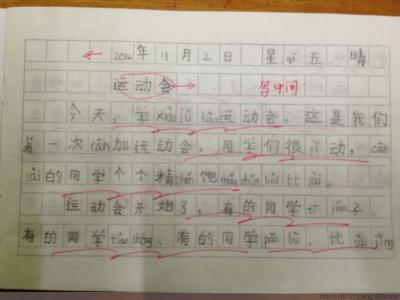 2014年11月2日 星qī五 晴
运动会 写中间
今天,学xiào jǔ bàn运动会。这是我们
一次cān加运动会。同学们很jī动,cān
sài的同学个个精shén饱mǎn zhǔn bèi bǐ sài。
运动会开始了,有的同学tī jiàn子、
有的同学tiào shéng、有的同学pǎo bù、比sài jìng